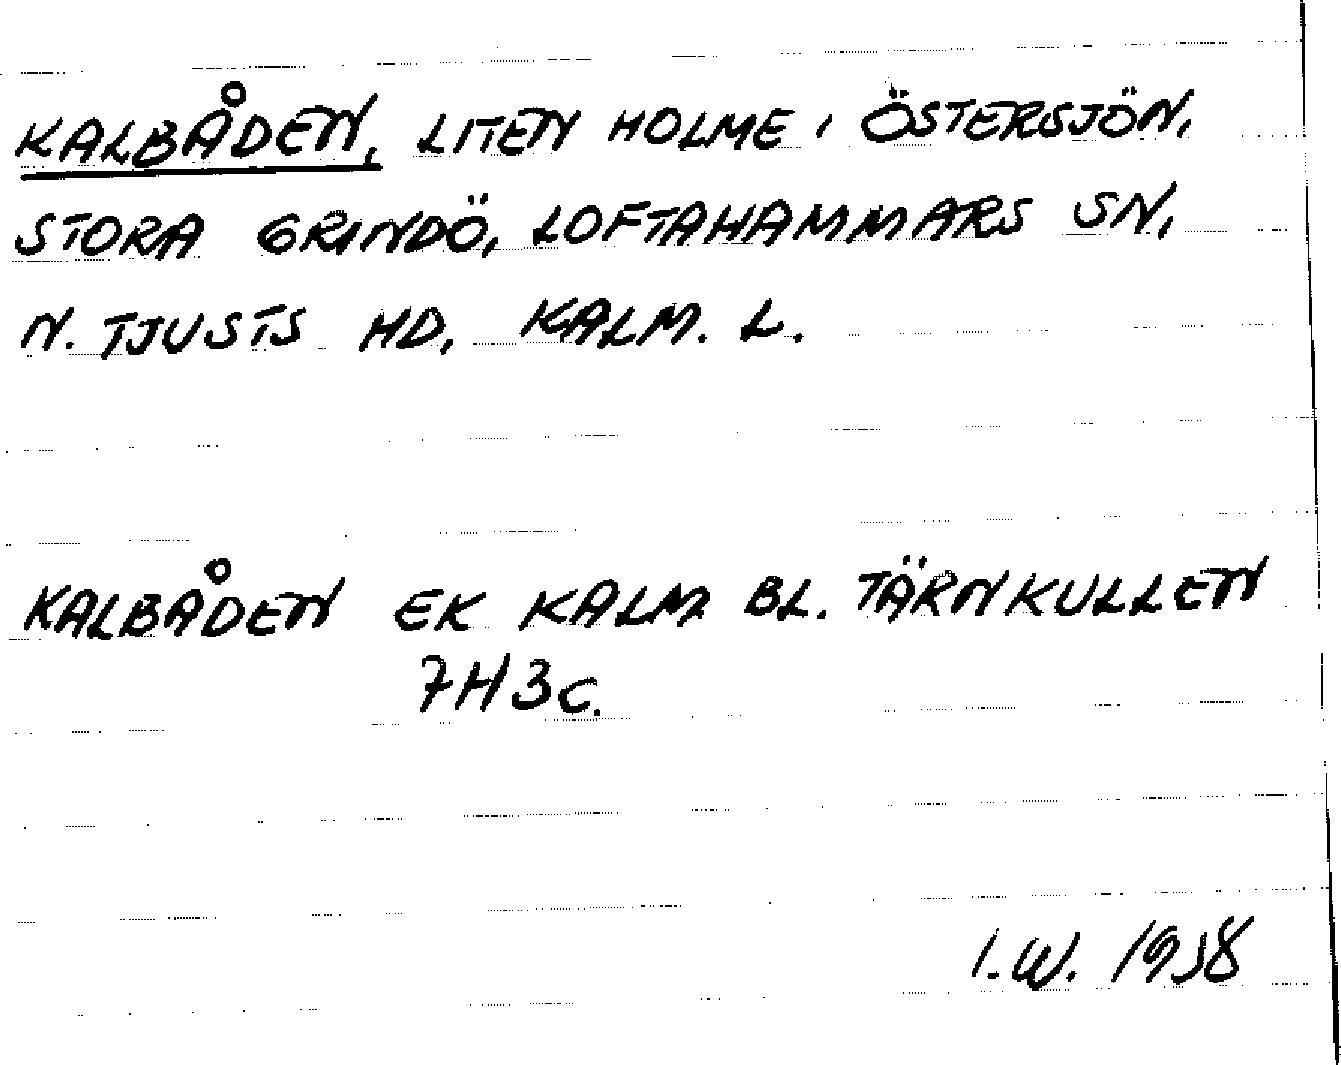 KALBÅDEN, LITEN HOLME I ÖSTERSJÖN,
STORA GRINDÖ, LOFTAHAMMARS SN,
N. TJUSTS HD, KALM. L.
KALBÅDEN EK KALM BL. TÄRNKULLEN
7H3c.
I.W. 1958